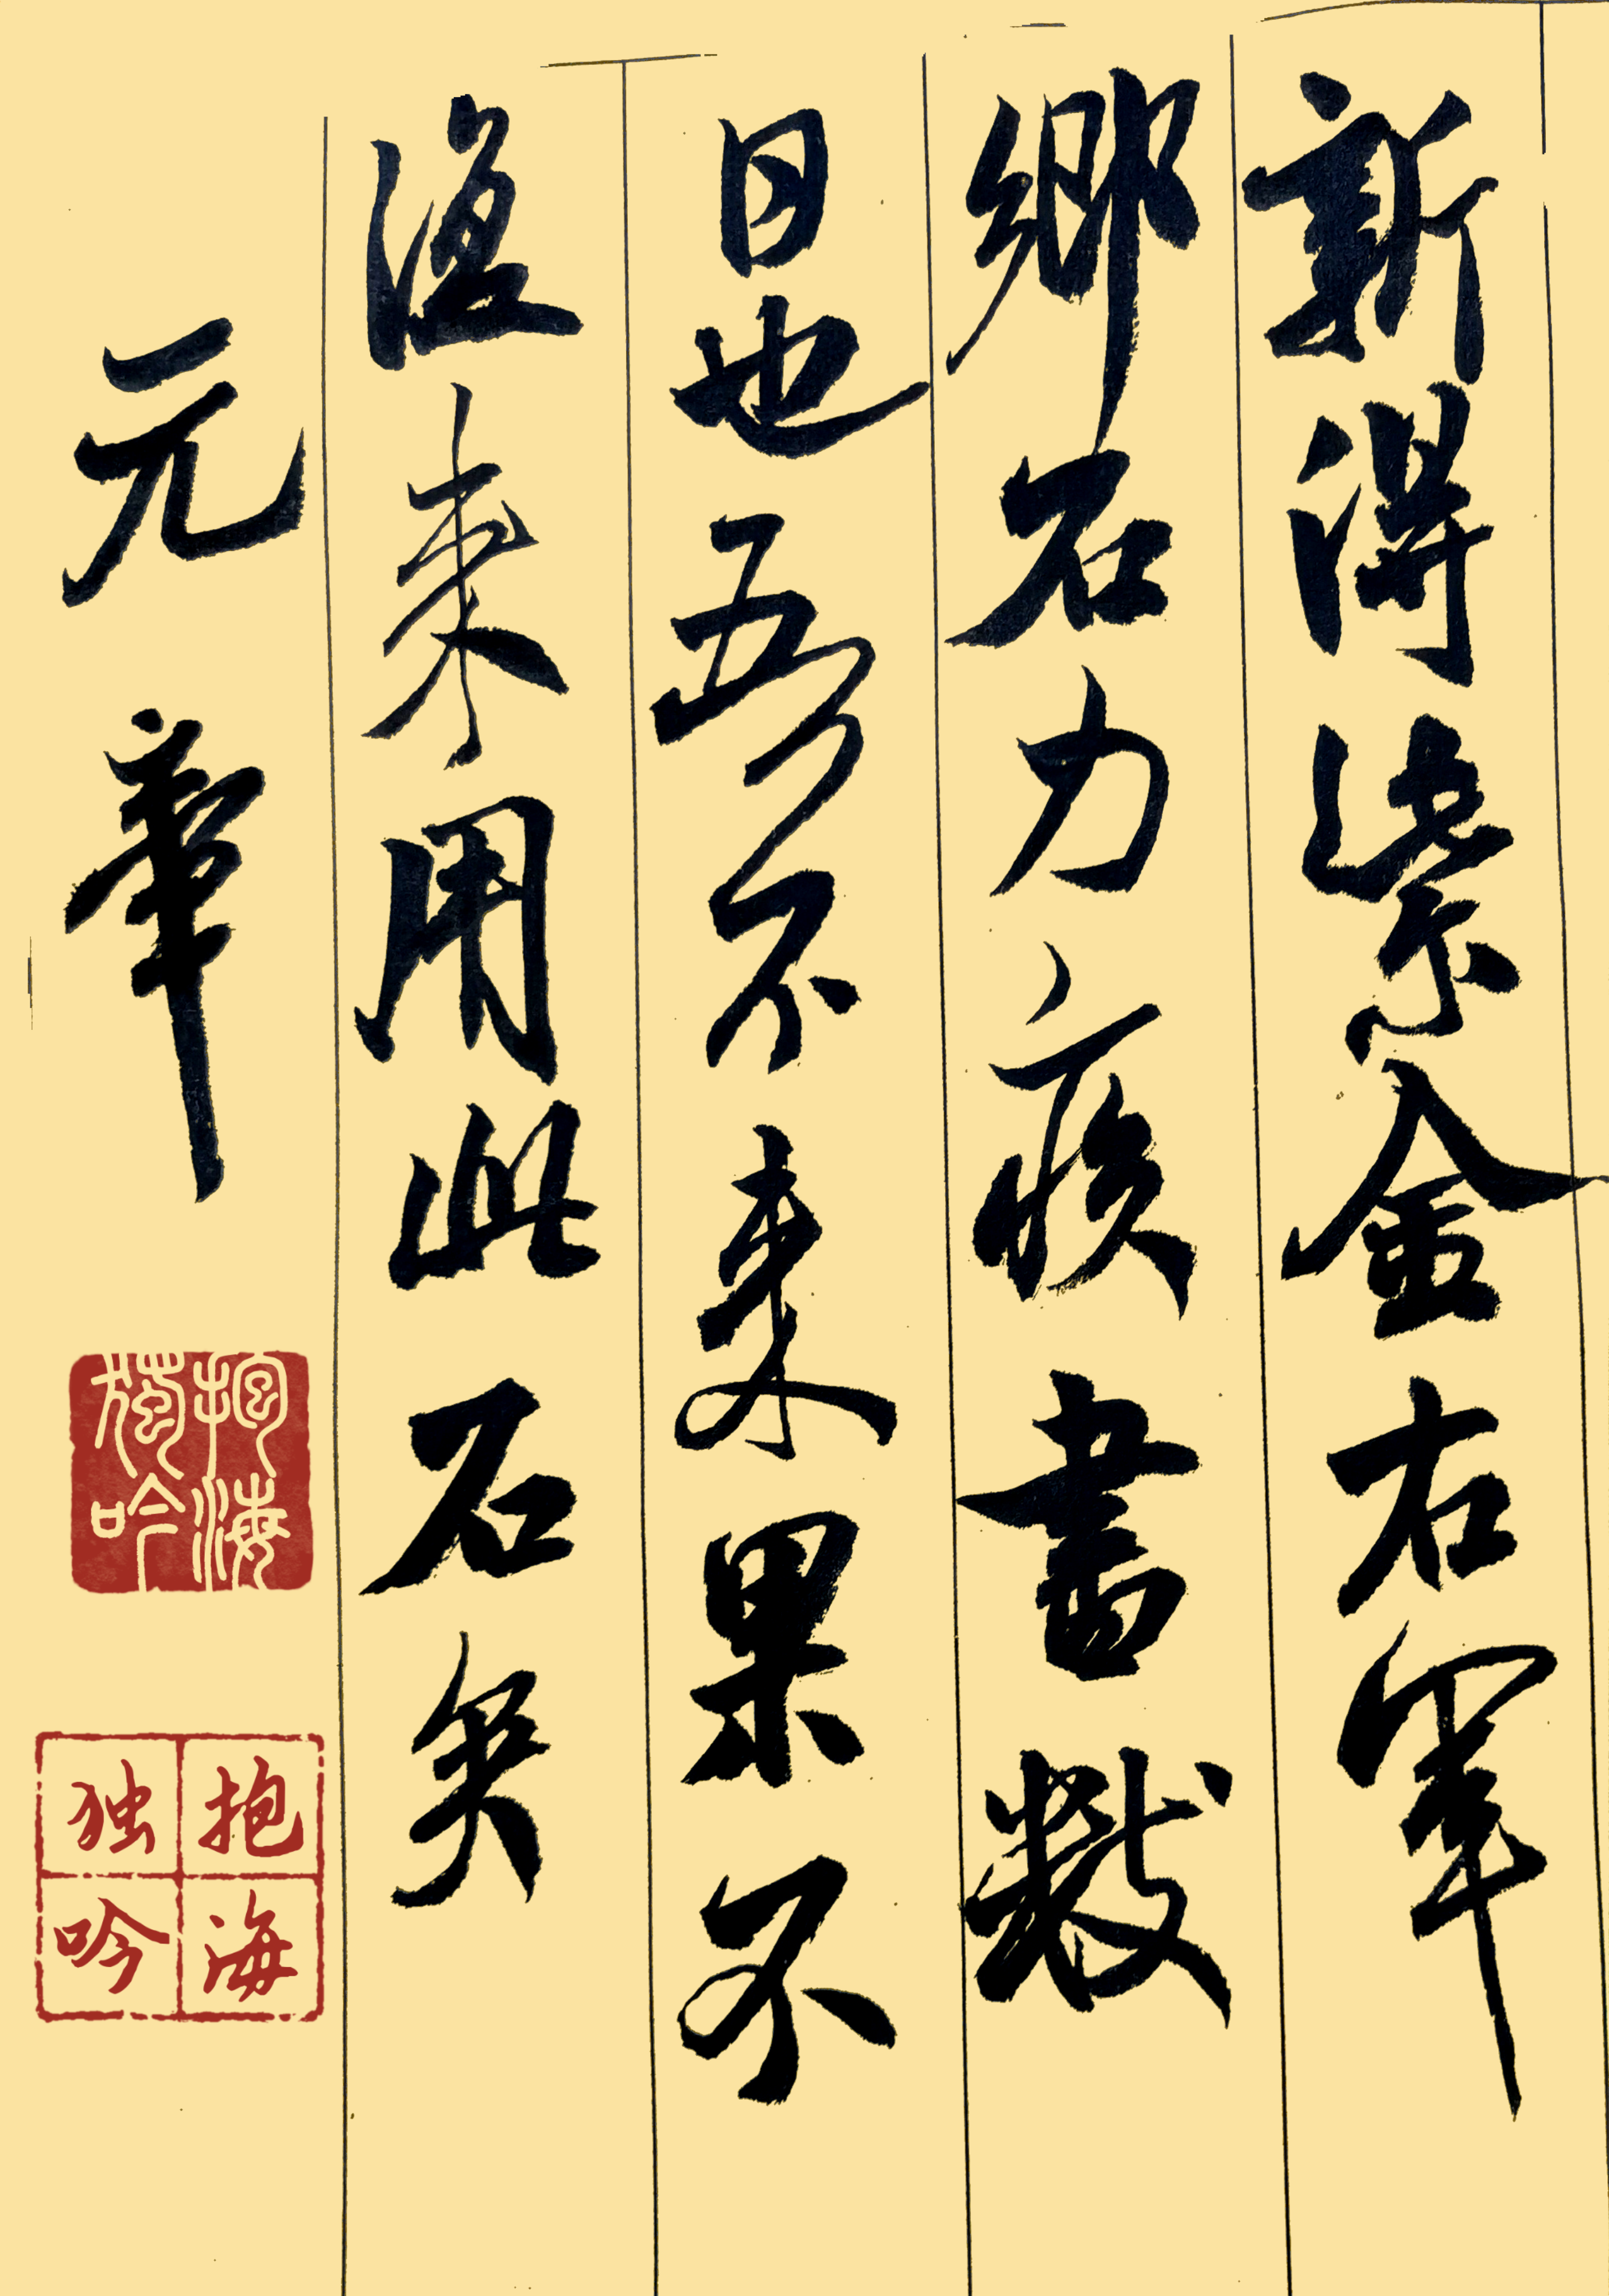 新得紫金右軍
鄉石力疾書數
日也吾不来果不
復来用此石矣
元章
抱海
獨吟
抱海
独吟